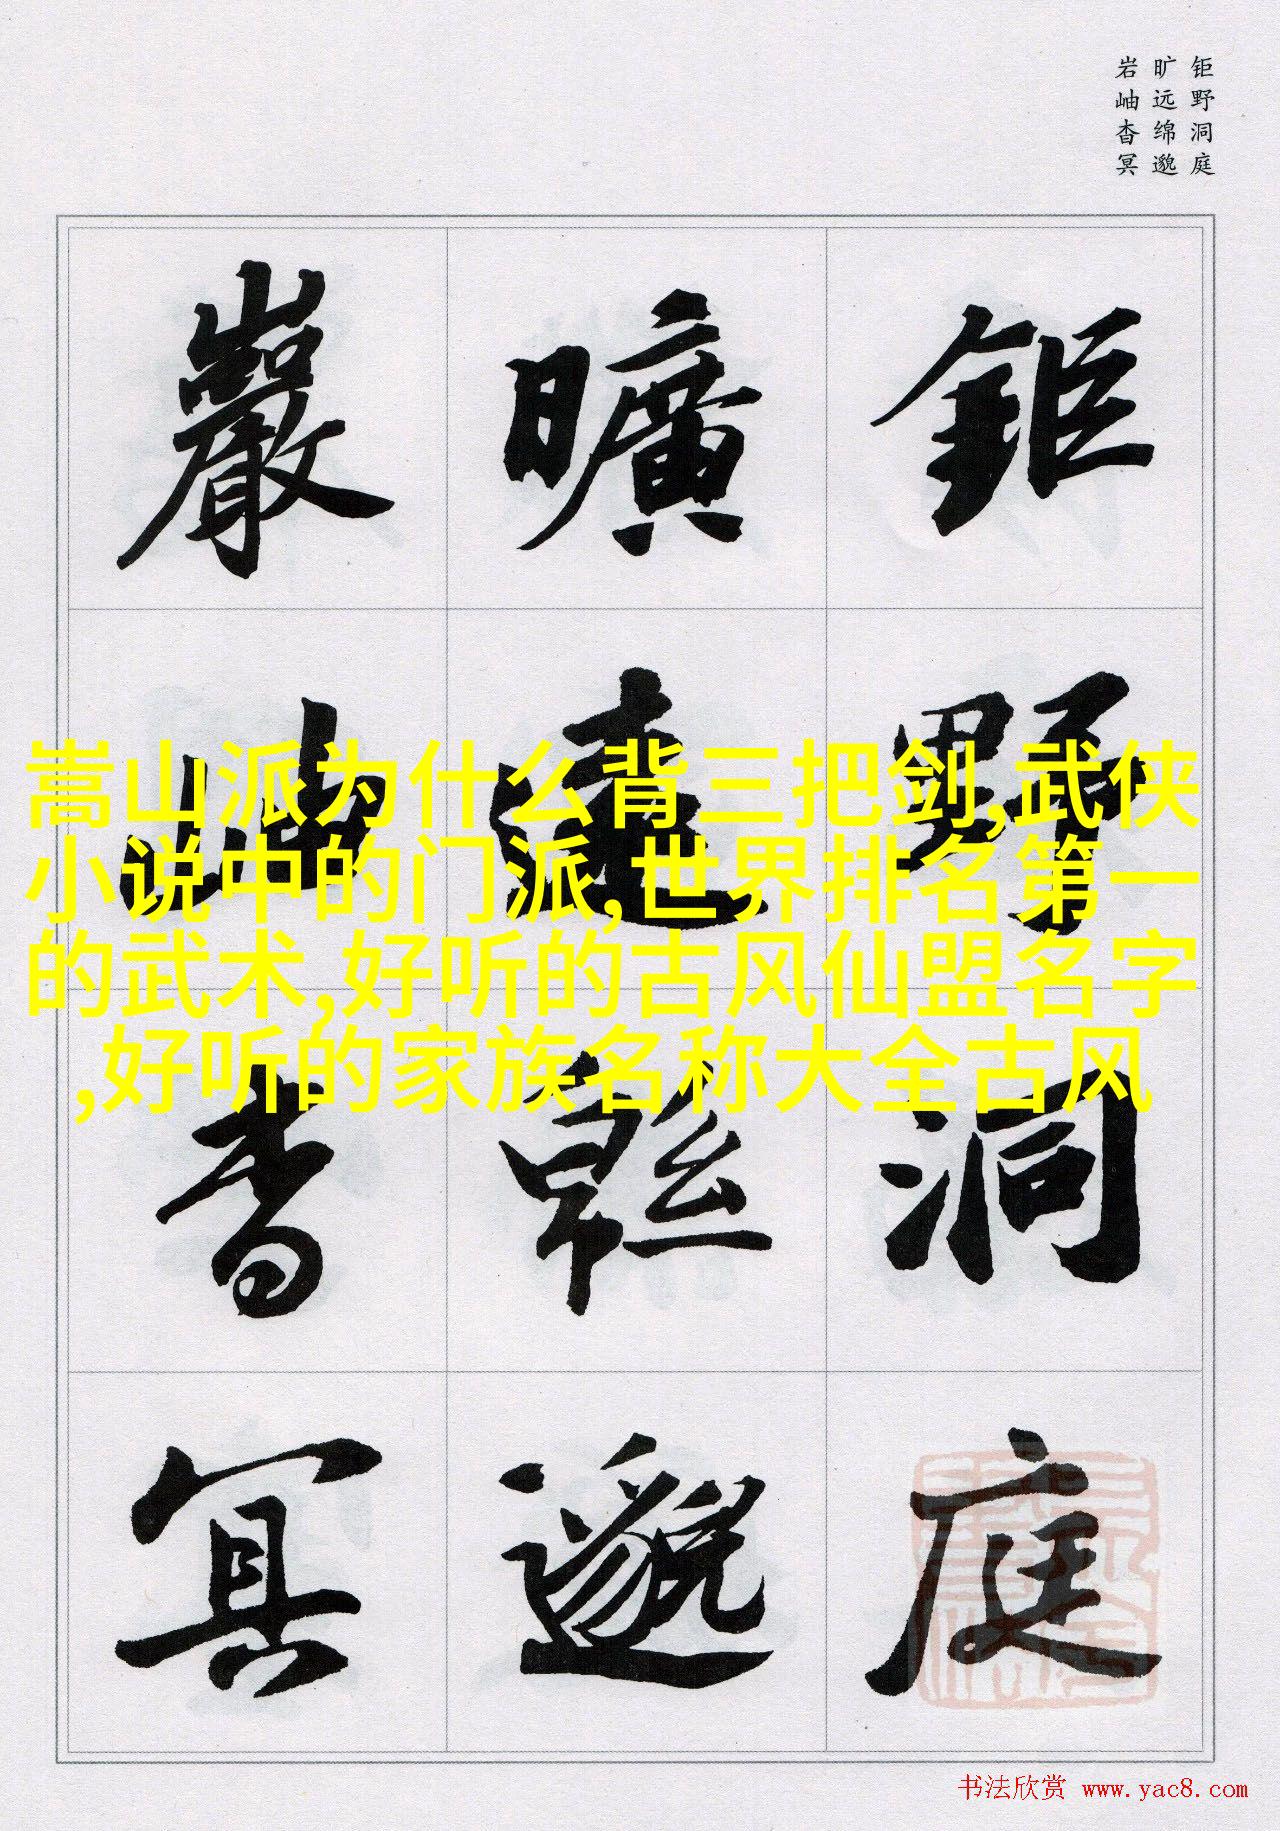 钜野洞庭
旷远绵邈
岩岫杳冥
鉅野洞庭
曠遠緜邈
巖岫杳冥
嵩山派为什么背三把剑,武侠
小说中的门派,世界排名第一
的武术,好听的古风仙盟名字
,好听的家族名称大全古风
书法欣赏 www.yac8.com